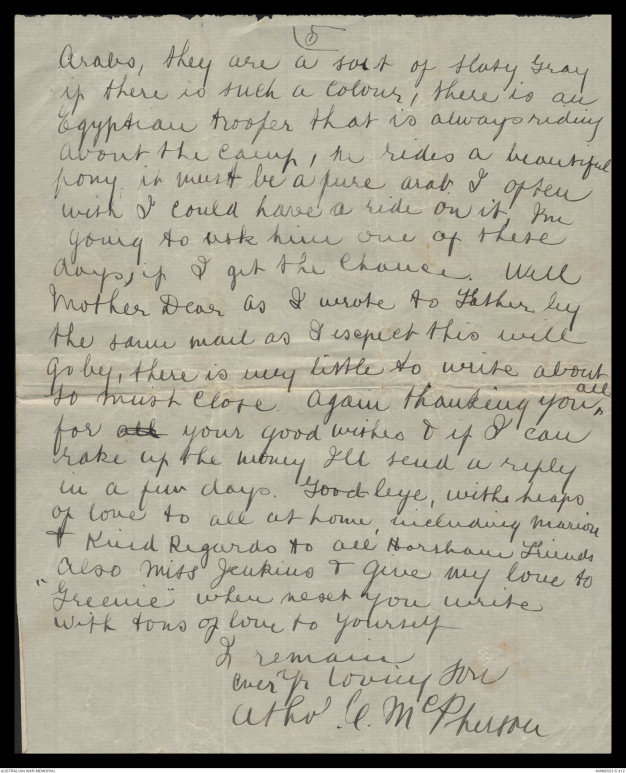 5
Arabs, they are a sort of slaty Gray
if there is such a Colour, there is an
Egyptian trooper that is always riding
about the camp, he rides a beautiful
pony, it must be a pure arab. I often
wish I could have a ride on it, I'm
going to ask him one of these
days, if I get the chance. Well
Mother Dear as I wrote to Father by
the same mail as I expect this will
go by, there is very little to write about
so must close. Again thanking you all
for all your good wishes & if I can
rake up the money I'll send a reply
in a few days. Goodbye, with heaps
of love to all at home, including Marion
& Kind Regards to all Horsham Friends
Also Miss Jenkins & Give my love to
"Greenie" when next you write
With tons of love to yourself
I remain
ever Yr loving Son
Athol. C. McPherson
AUSTRALIAN WAR MEMORIAL